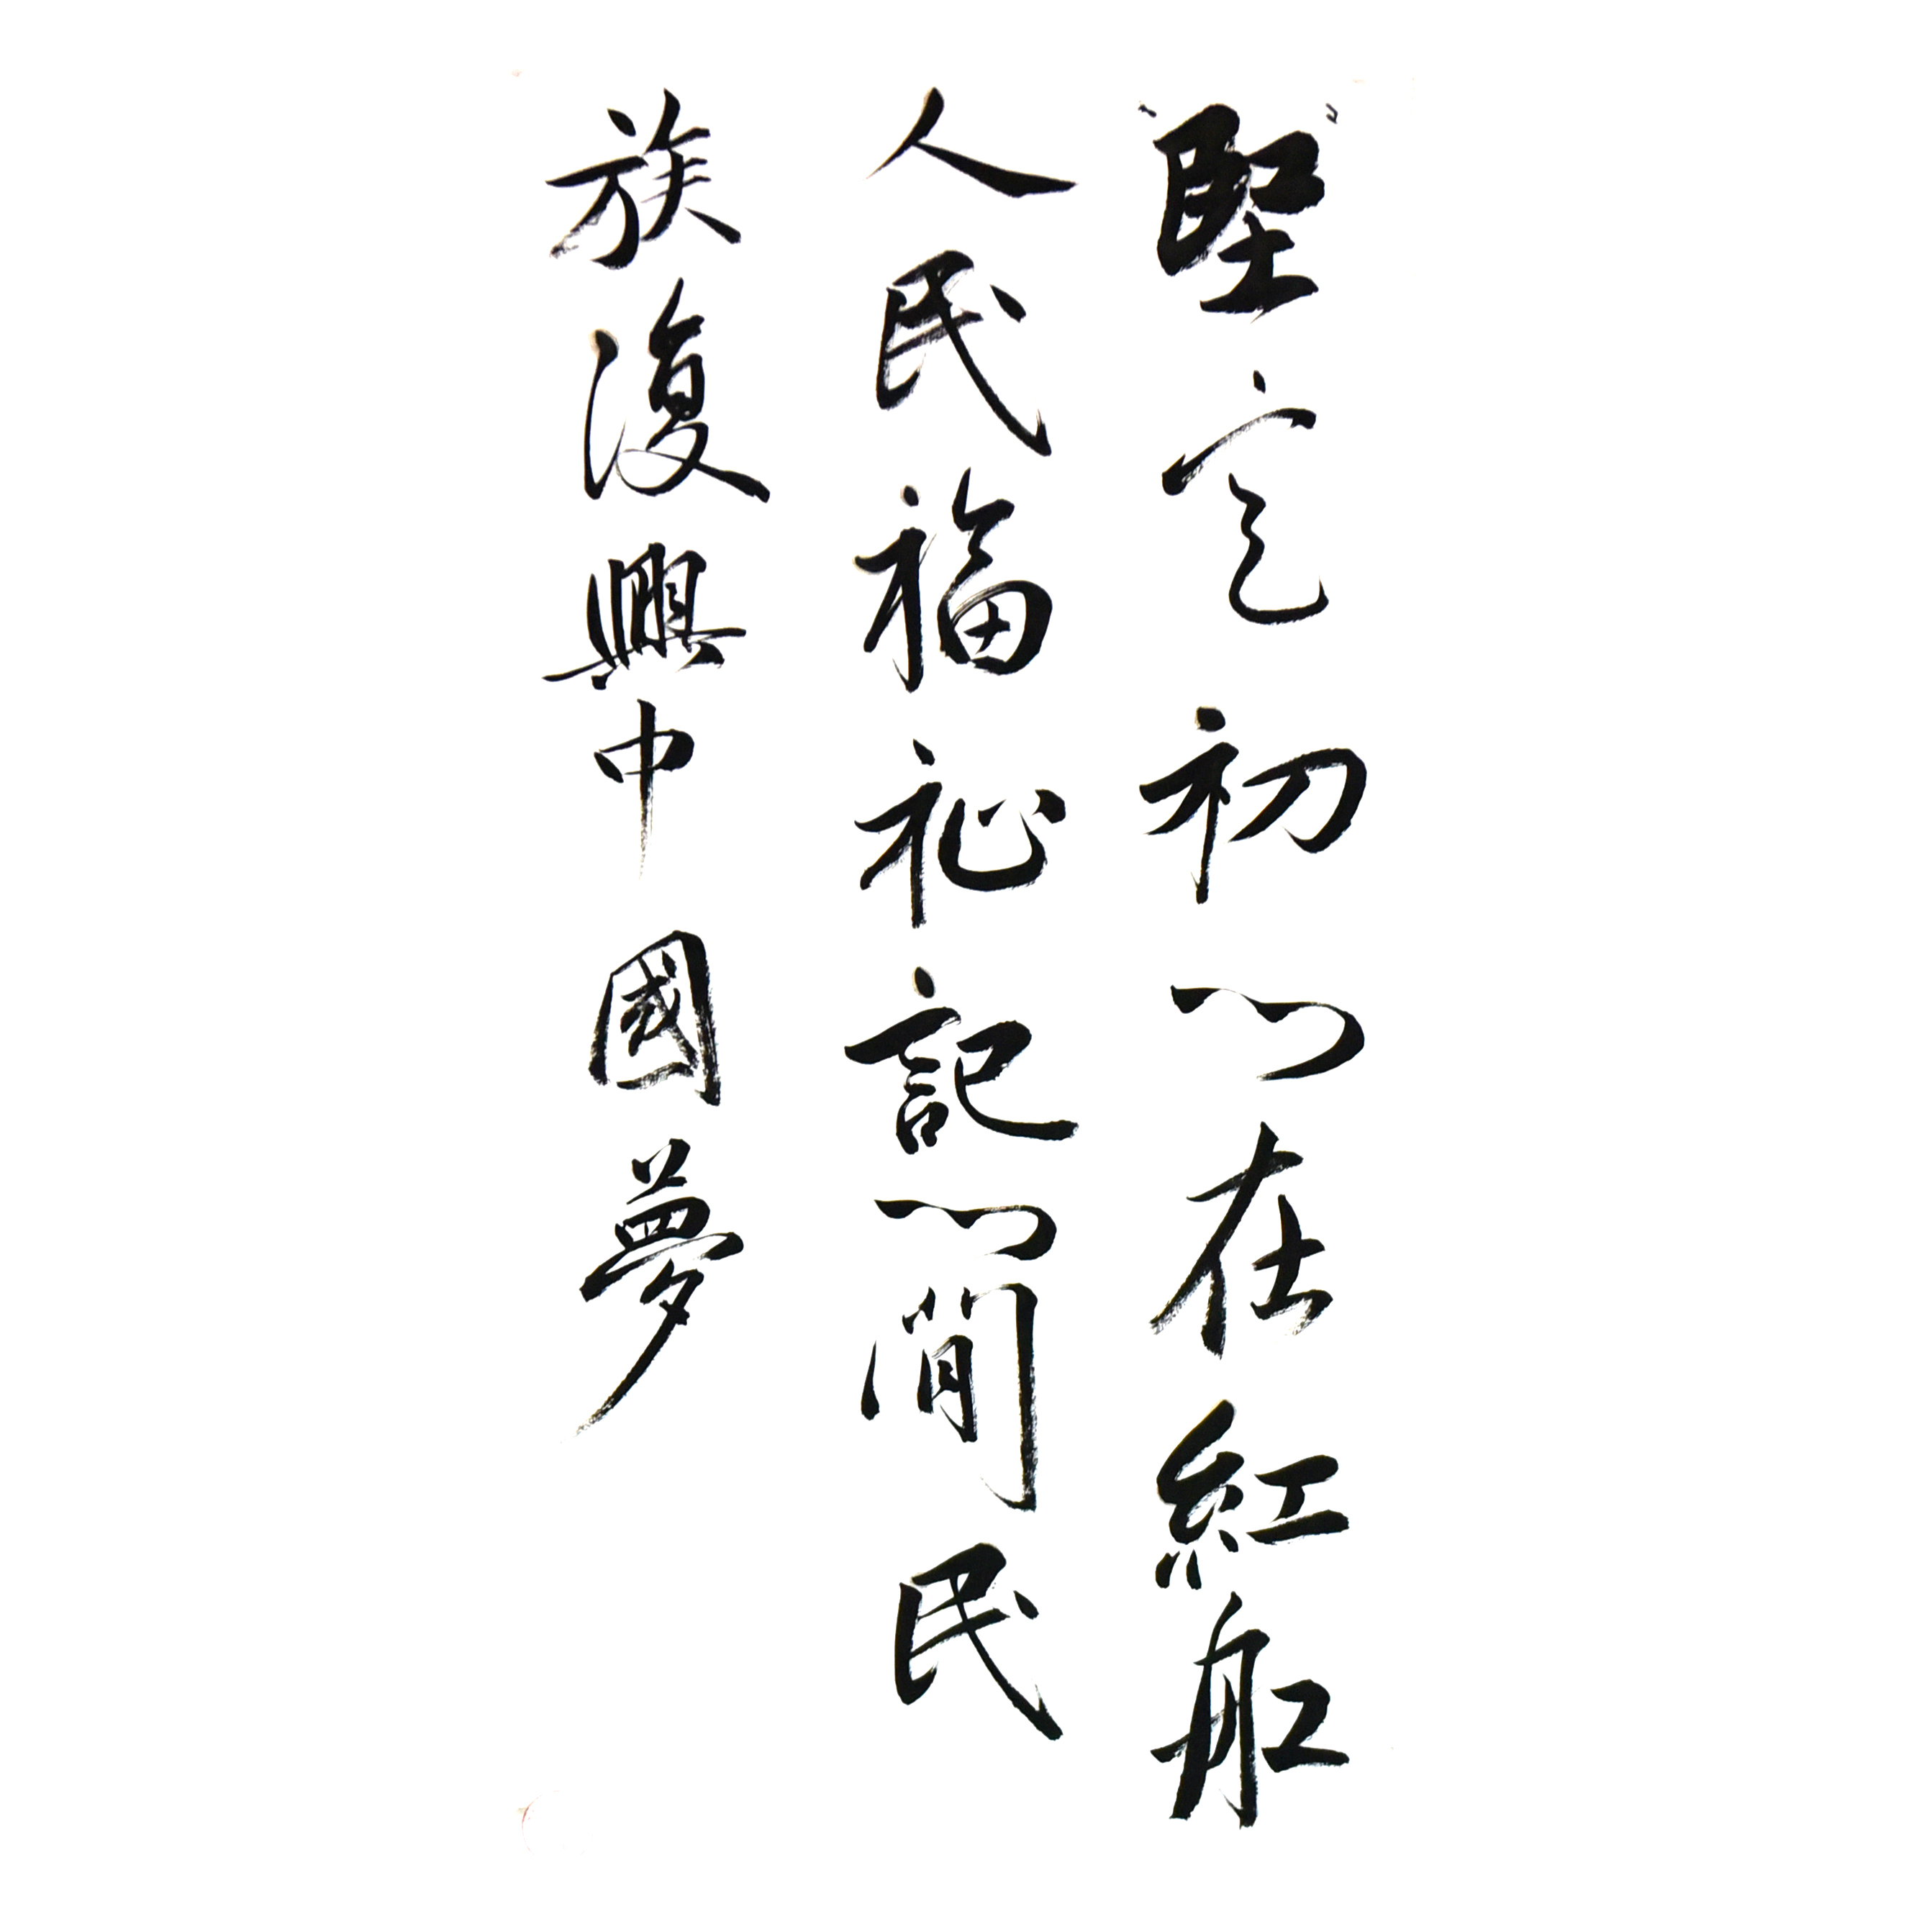 堅定初心在紅船
人民福祉記心間民
族復興中國夢